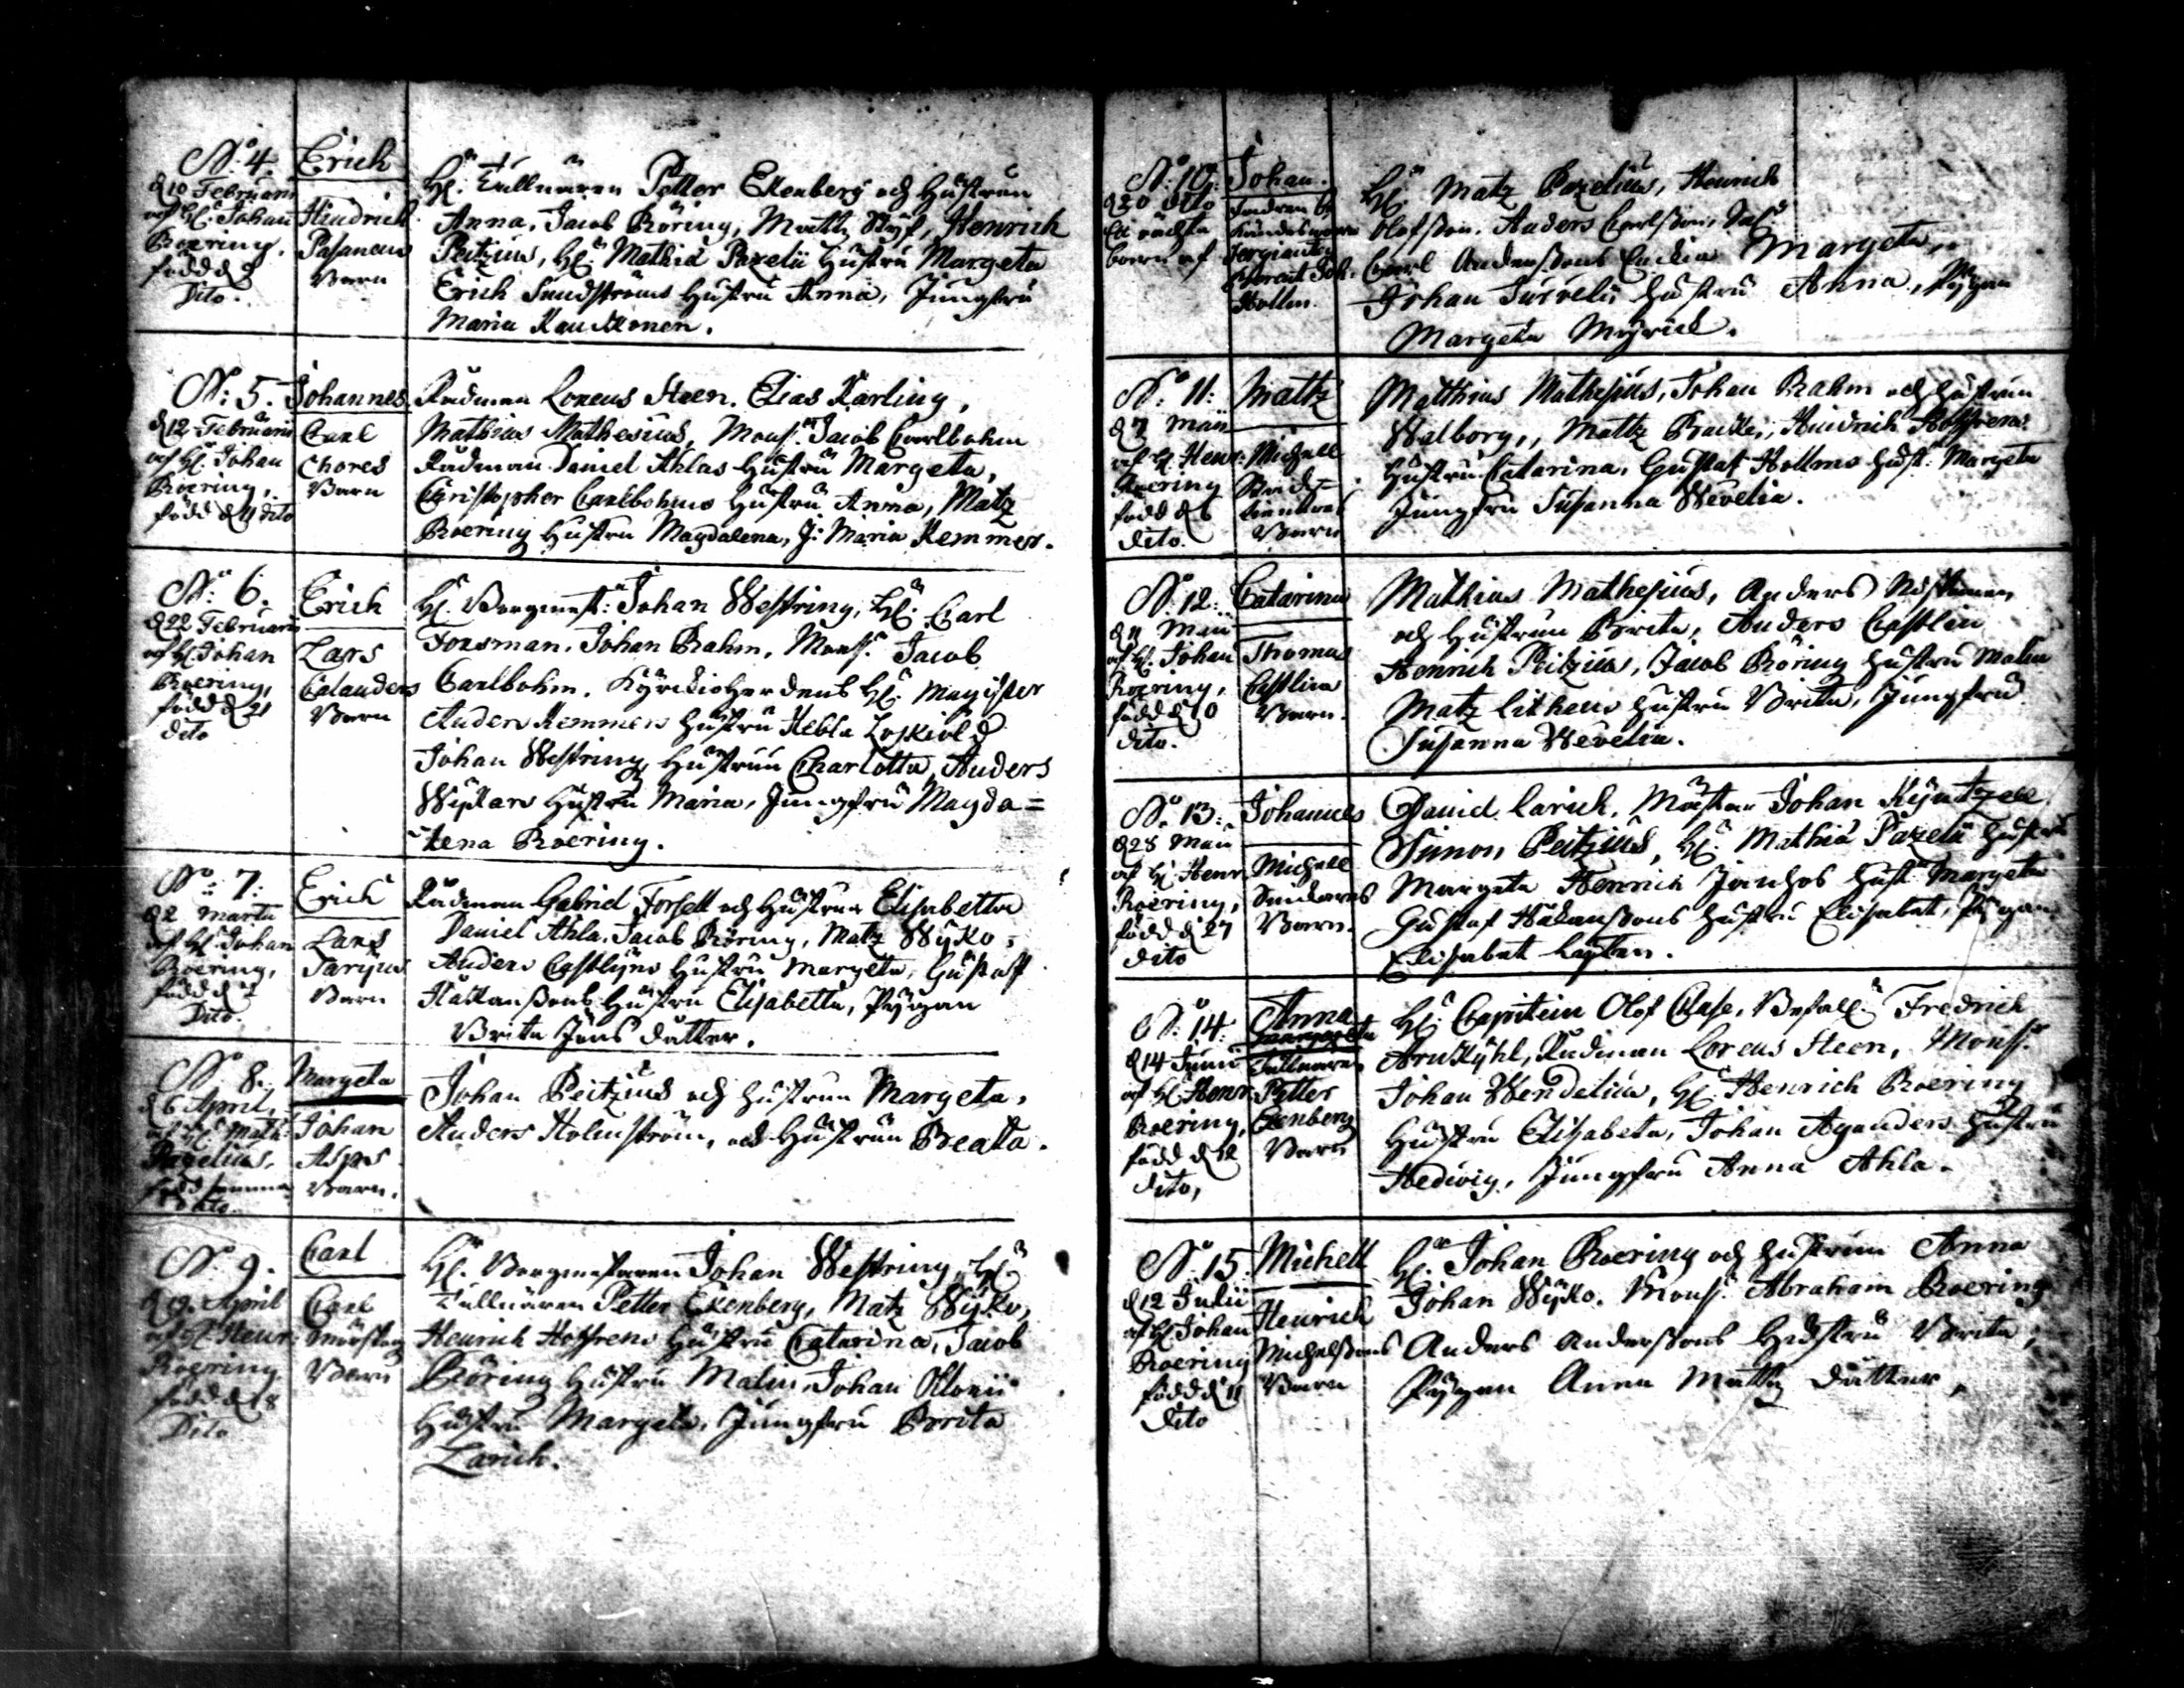 No. 4.
d 10 Februarii
af H. Johan
Roering,
född d 9
Dito.
Erich
Hindrich
Pasaneus
Barn
H. Tullnären Petter Ekenberg och Hustrun
Anna, Jacob Röring, Matz Styf, Henrich
Peitzius, H. Mathiæ Pazelii Hustru Margeta
Erich Sundströms Hustru Anna, Jungfru
Maria Kaukkonen.
No. 5.
d 12 Februarii
af H. Johan
Roering,
född d 11 dito
Johannes
Carl
Chores
Barn
Rådman Lorens Steen, Elias Karling,
Mathias Mathesius, Mons. Jacob Carlbohm
Rådman Daniel Ahlas Hustru Margeta,
Christopher Carlbohms Hustru Anna, Matz
Roering Hustru Magdalena, J: Maria Kemmer.
No. 6.
d 22 Februarii
af H. Johan
Roering,
född d 21
dito
Erich
Lars
Calanders
Barn
H. Borgmest: Johan Westring, H. Carl
Forsman, Johan Brahm, Mons. Jacob
Carlbohm, Kyrckioherdens H. Magister
Anders Kemmers Hustru Hebla
Johan Westring Hustrun Charlotta, Anders
Wijkars Hustru Maria, Jungfru Magda=
lena Roering.
No. 7.
d 2 Martii
af H. Johan
Roering,
född d 2
Dito.
Erich
Lars
Barn
Rådman Gabriel Forsell och Hustrun Elisabetta
Daniel Ahla, Jacob Röring, Matz Wijko,
Anders Castlijns Hustru Margeta, Gustaf
Håkanssons Hustru Elisabetta, Pijgan
Brita Jöns dotter.
No. 8.
d 6 April,
af H. Math:
Pazelius,
född samma
dito.
Margeta
Johan
Asps
Barn.
Johan Peitzius och Hustrun Margeta,
Anders Holmström, och Hustrun Beata.
No. 9.
d 19 April
af H. Henr
Roering
född d 18
Dito
Carl
Carl
Barn
H. Borgmestaren Johan Westring, H.
Tullnären Petter Ekenberg, Matz Wijko,
Henrich Hoffrens Hustru Catarina, Jacob
Röring Hustru Malin, Johan
Hustru Margeta, Jungfru Brita
Larich.
No. 10.
d 20 dito
barn af
Johan.
Hollm.
H. Matz Pazelius, Henrich
Olofsson, Anders Carlsson,
Carl Anderssons Enckia Margeta,
Johan Hustru Anna, Pijgan
Margeta
No. 11.
d 7 Maii
af H. Henr:
Roering
född d 6
dito.
Mattz
Michell
Barn
Matthias Mathesius, Johan Brahm och Hustrun
Walborg, Mattz Hindrich Hoffrens
Hustru Catarina, Gustaf Hollms Hust: Margeta
Jungfru Susanna Wevelia.
No. 12.
d 11 Maii
af H. Johan
Roering,
född d 10
dito.
Catarina
Thomas
Castlin
Barn.
Mathias Mathesius, Anders
och Hustrun Brita, Anders Castlin
Henrich Peitzius, Jacob Röring Hustru Malin
Matz Lithens Hustru Brita, Jungfru
Susanna Wevelia.
No. 13.
d 28 Maii
af H. Henr
Roering,
född d 27
dito
Johannes
Michell
Barn.
Daniel Larich, Mäster Johan Kijntzell
Simon Peitzius, H. Mathiæ Pazelii Hustru
Margeta Henrich Hust: Margeta
Gustaf Håkanssons Hustru Elisabet, Pijgan
Elisabet
No. 14.
d 14 Junii
af H. Henr
Roering,
född d 12
dito,
Anna
Margareta
Tullnaren
Petter
Ekenberg
Barn
H. Capitein Olof Clase, Befall. Fredrich
Arnkijhl, Rådman Lorens Steen, Mons.
Johan Wendelius, H. Henrich Roering
Hustru Elisabeta, Johan Aganders Hustru
Hedwig, Jungfru Anna Ahla.
No. 15.
d 12 Julii
af H. Johan
Roering
född d 11
dito
Michell
Henrich
Michelssons
Barn
H. Johan Roering och Hustrun Anna
Johan Wijko, Mons. Abraham Roering
Anders Anderssons Hustru Brita,
Pijgan Anna Mattz dotter,